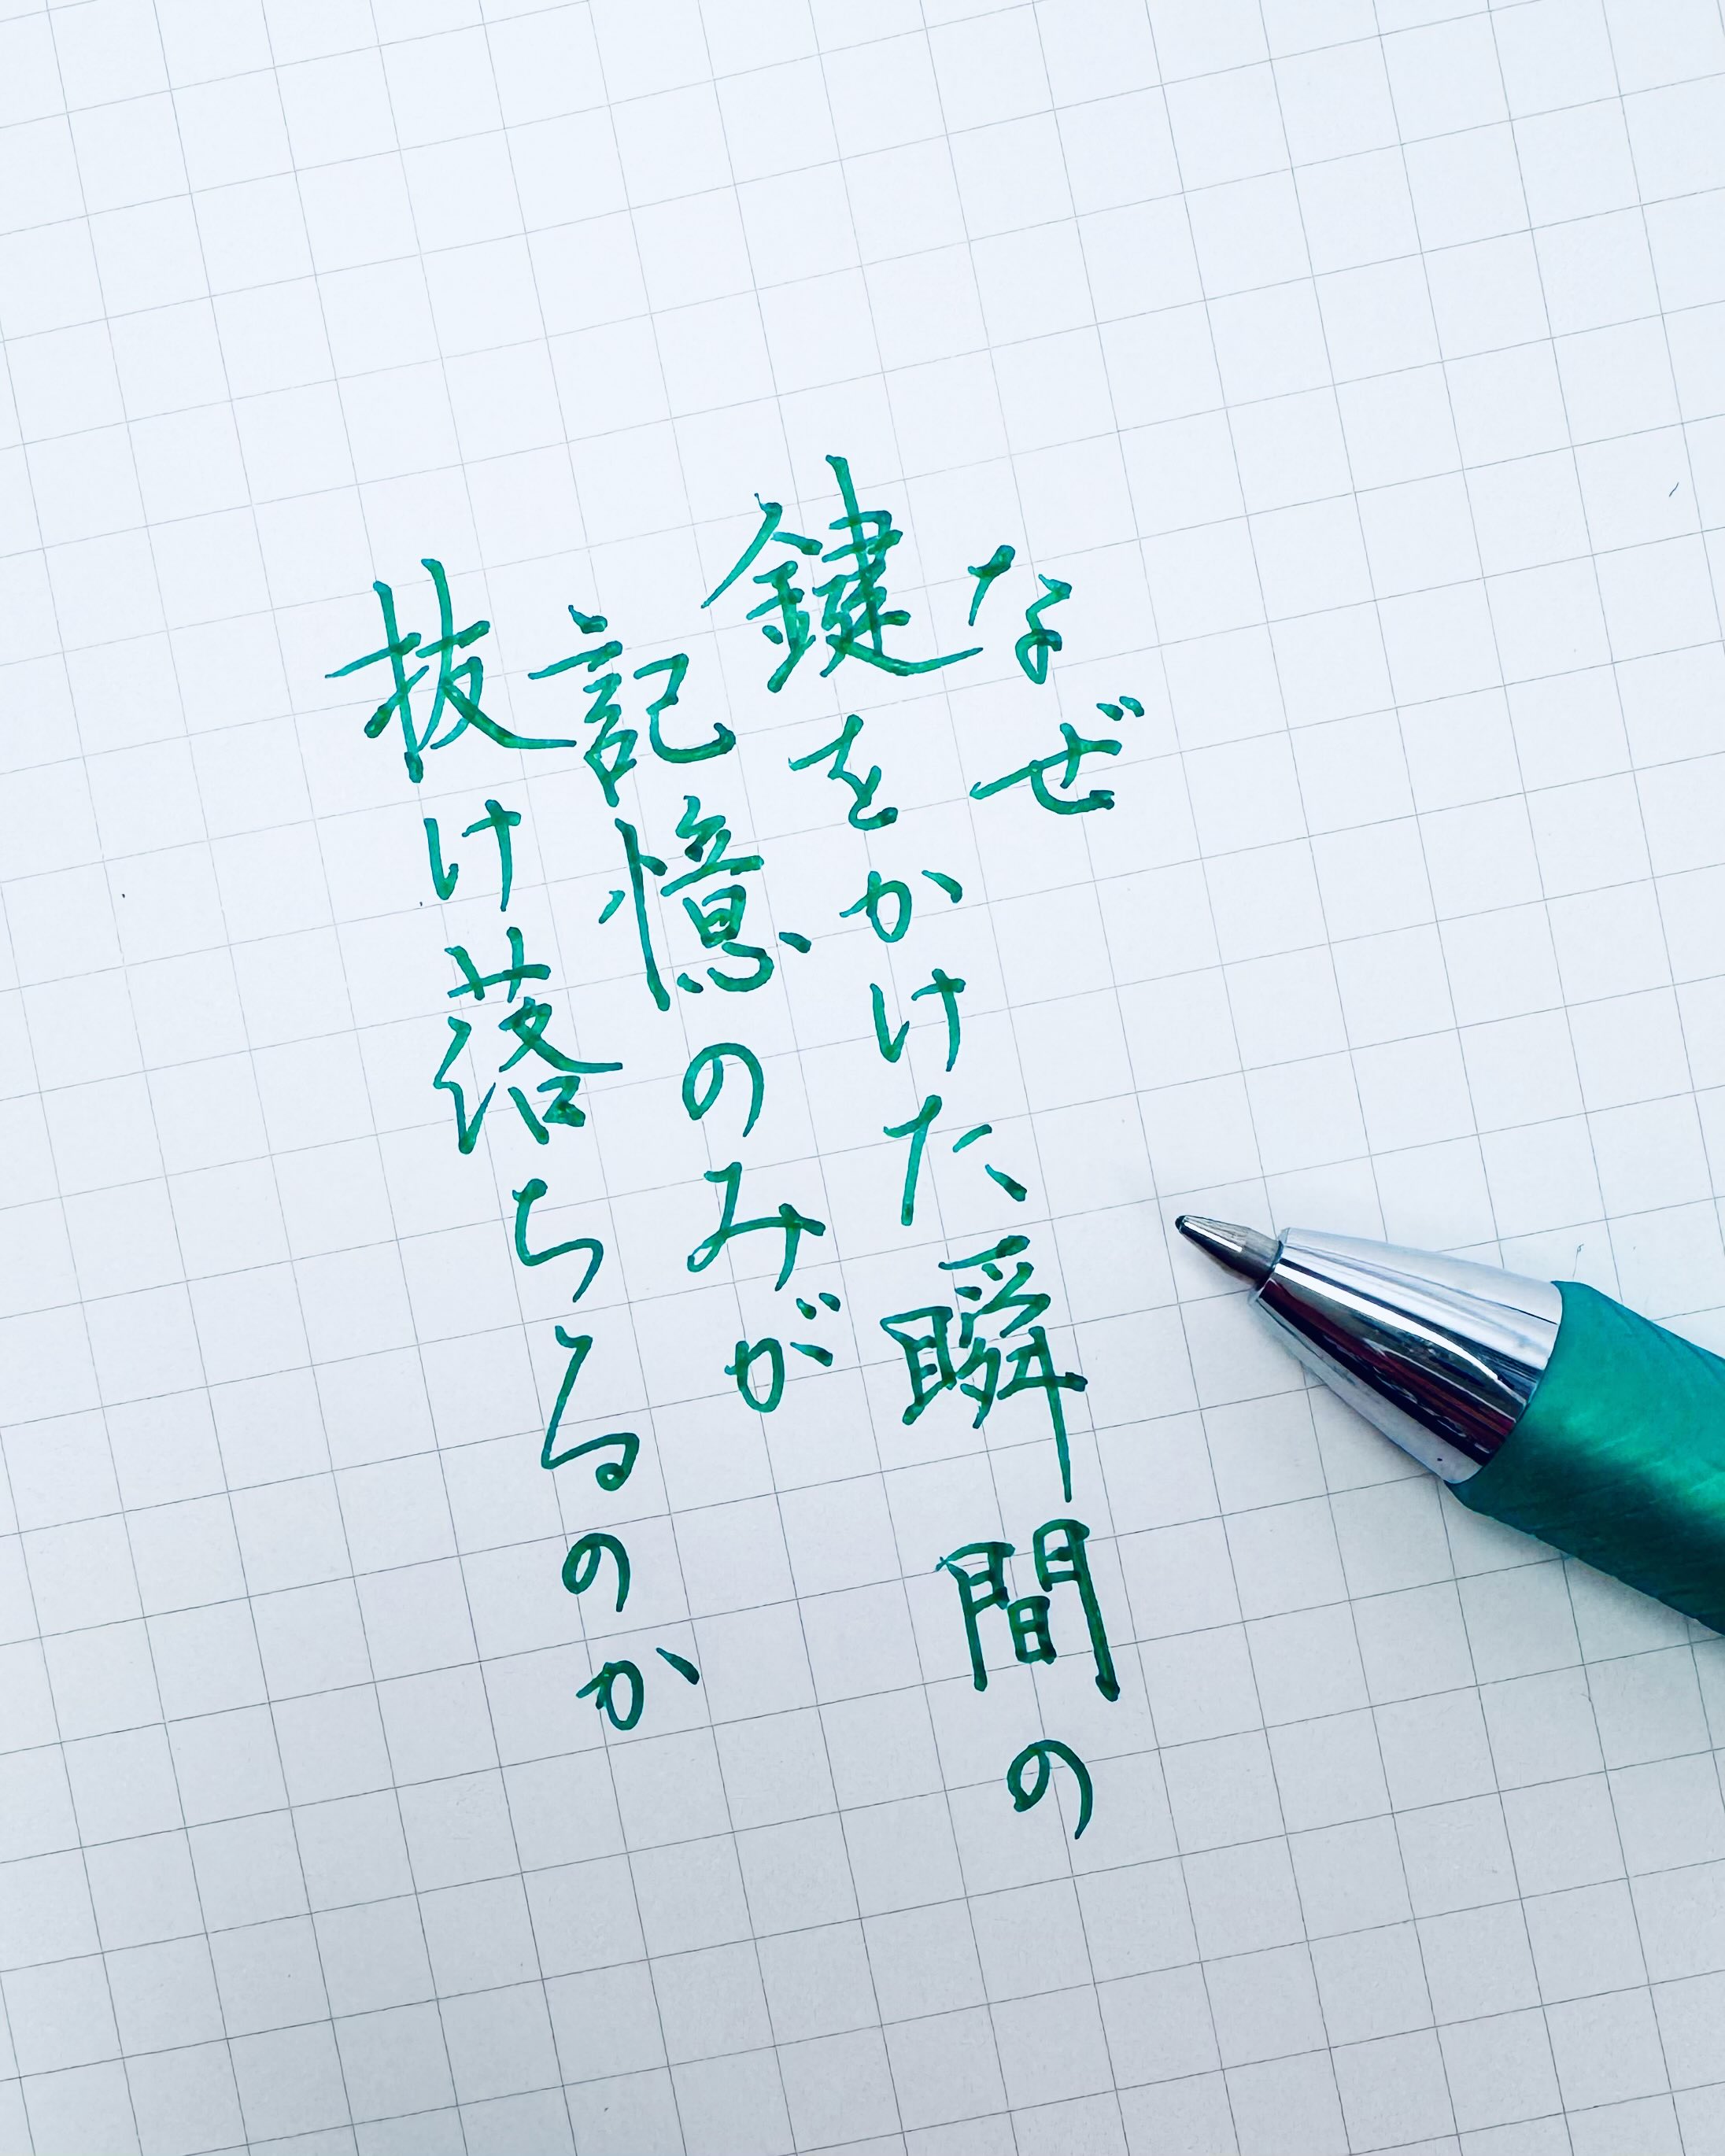 なぜ
鍵をかけた瞬間の
記憶のみが
抜け落ちるのか